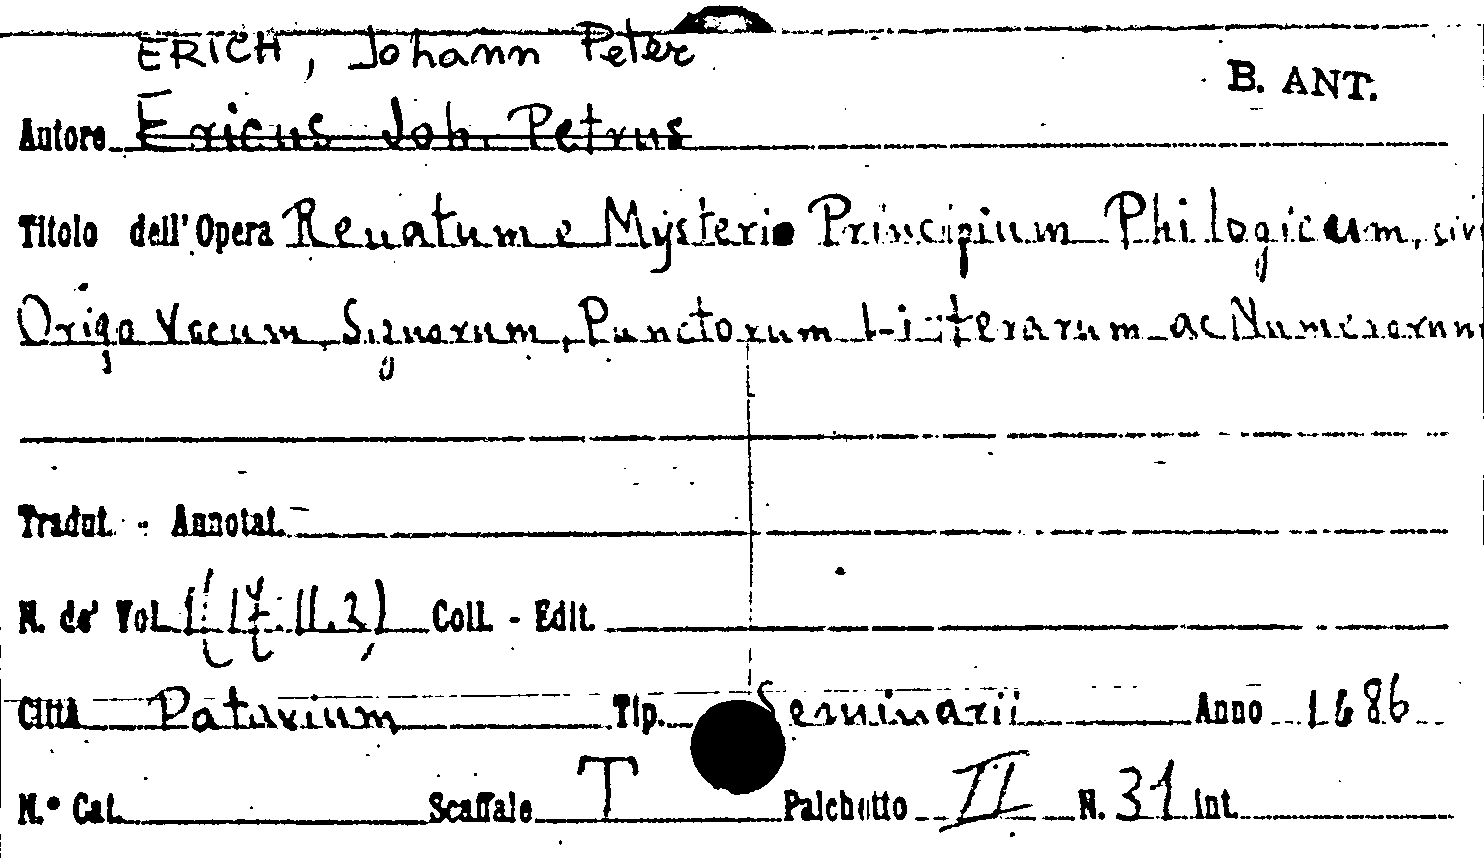 ERICH, Johann Peter
B. ANT.
Autore Ericus Joh. Petrus
Titolo dell'Opera Renatum e Mysterio Principium Philogicum, siv
Origo Vocum, Signorum, Punctorum Litterarum ac Numerorum
Tradut. - Annotat.
N. de' Vol. 1 (17.11.2) Coll. - Edit.
Città Patavium Tip. Seminarii Anno 1686
N.° Cat. Scaffale T Palchetto II N. 31 Int.